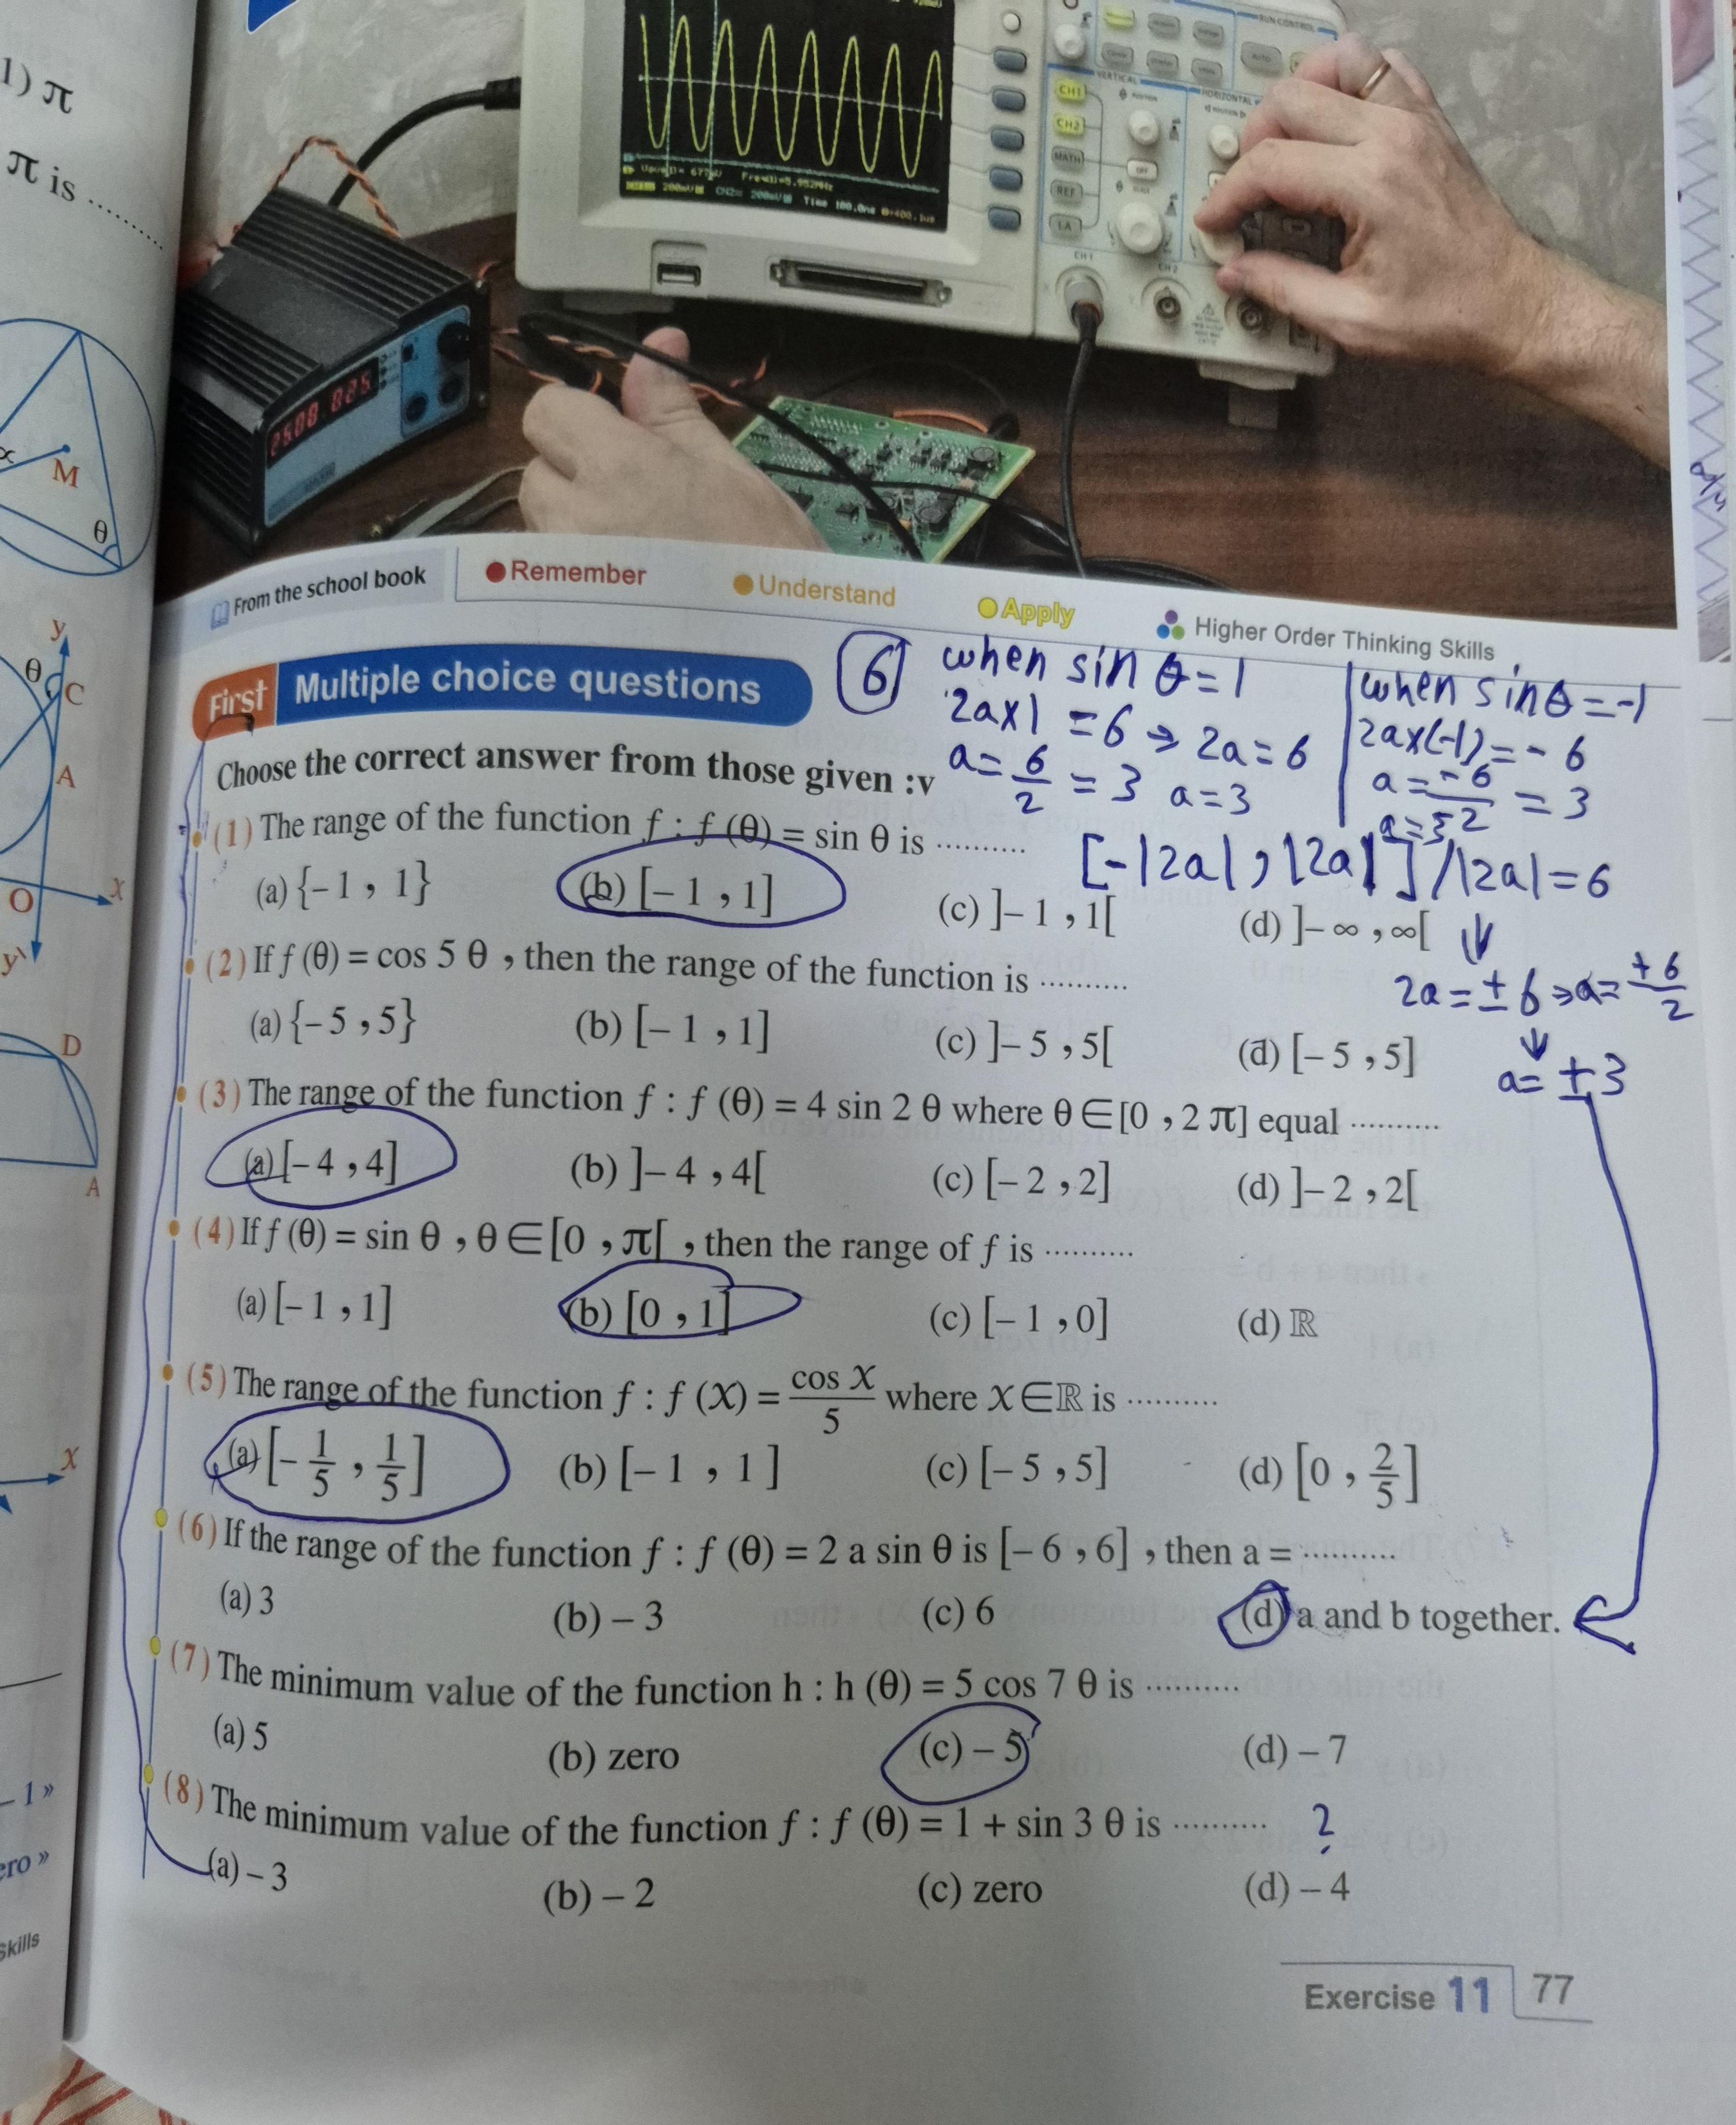 1) π
π is ..........
CH1
CH2
MATH
REF
LA
VERTICAL
HORIZONTAL
CH1
CH2
M
θ
y
θ
C
A
O
x
y`
D
A
x
– 1 »
ero »
Skills
From the school book
Remember
Understand
Apply
Higher Order Thinking Skills
First Multiple choice questions
6 when sin θ = 1
2a×1 = 6 → 2a = 6
a = 6/2 = 3 a = 3
when sinθ = -1
2a×(-1) = - 6
a = -6/-2 = 3
[-|2a| , |2a|] / |2a| = 6
2a = ± 6 ⇒ a = ±6/2
a = ±3
Choose the correct answer from those given :v
(1) The range of the function f : f (θ) = sin θ is ..........
(a) {– 1 , 1} (b) [– 1 , 1] (c) ]– 1 , 1[ (d) ]– ∞ , ∞[
(2) If f (θ) = cos 5 θ , then the range of the function is ..........
(a) {– 5 , 5} (b) [– 1 , 1] (c) ]– 5 , 5[ (d) [– 5 , 5]
(3) The range of the function f : f (θ) = 4 sin 2 θ where θ ∈ [0 , 2 π] equal ..........
(a) [– 4 , 4] (b) ]– 4 , 4[ (c) [– 2 , 2] (d) ]– 2 , 2[
(4) If f (θ) = sin θ , θ ∈ [0 , π[ , then the range of f is ..........
(a) [– 1 , 1] (b) [0 , 1] (c) [– 1 , 0] (d) ℝ
(5) The range of the function f : f (X) = cos X/5 where X ∈ ℝ is ..........
(a) [– 1/5 , 1/5] (b) [– 1 , 1] (c) [– 5 , 5] (d) [0 , 2/5]
(6) If the range of the function f : f (θ) = 2 a sin θ is [– 6 , 6] , then a = ..........
(a) 3 (b) – 3 (c) 6 (d) a and b together.
(7) The minimum value of the function h : h (θ) = 5 cos 7 θ is ..........
(a) 5 (b) zero (c) – 5 (d) – 7
(8) The minimum value of the function f : f (θ) = 1 + sin 3 θ is .......... ?
(a) – 3 (b) – 2 (c) zero (d) – 4
Exercise 11 77